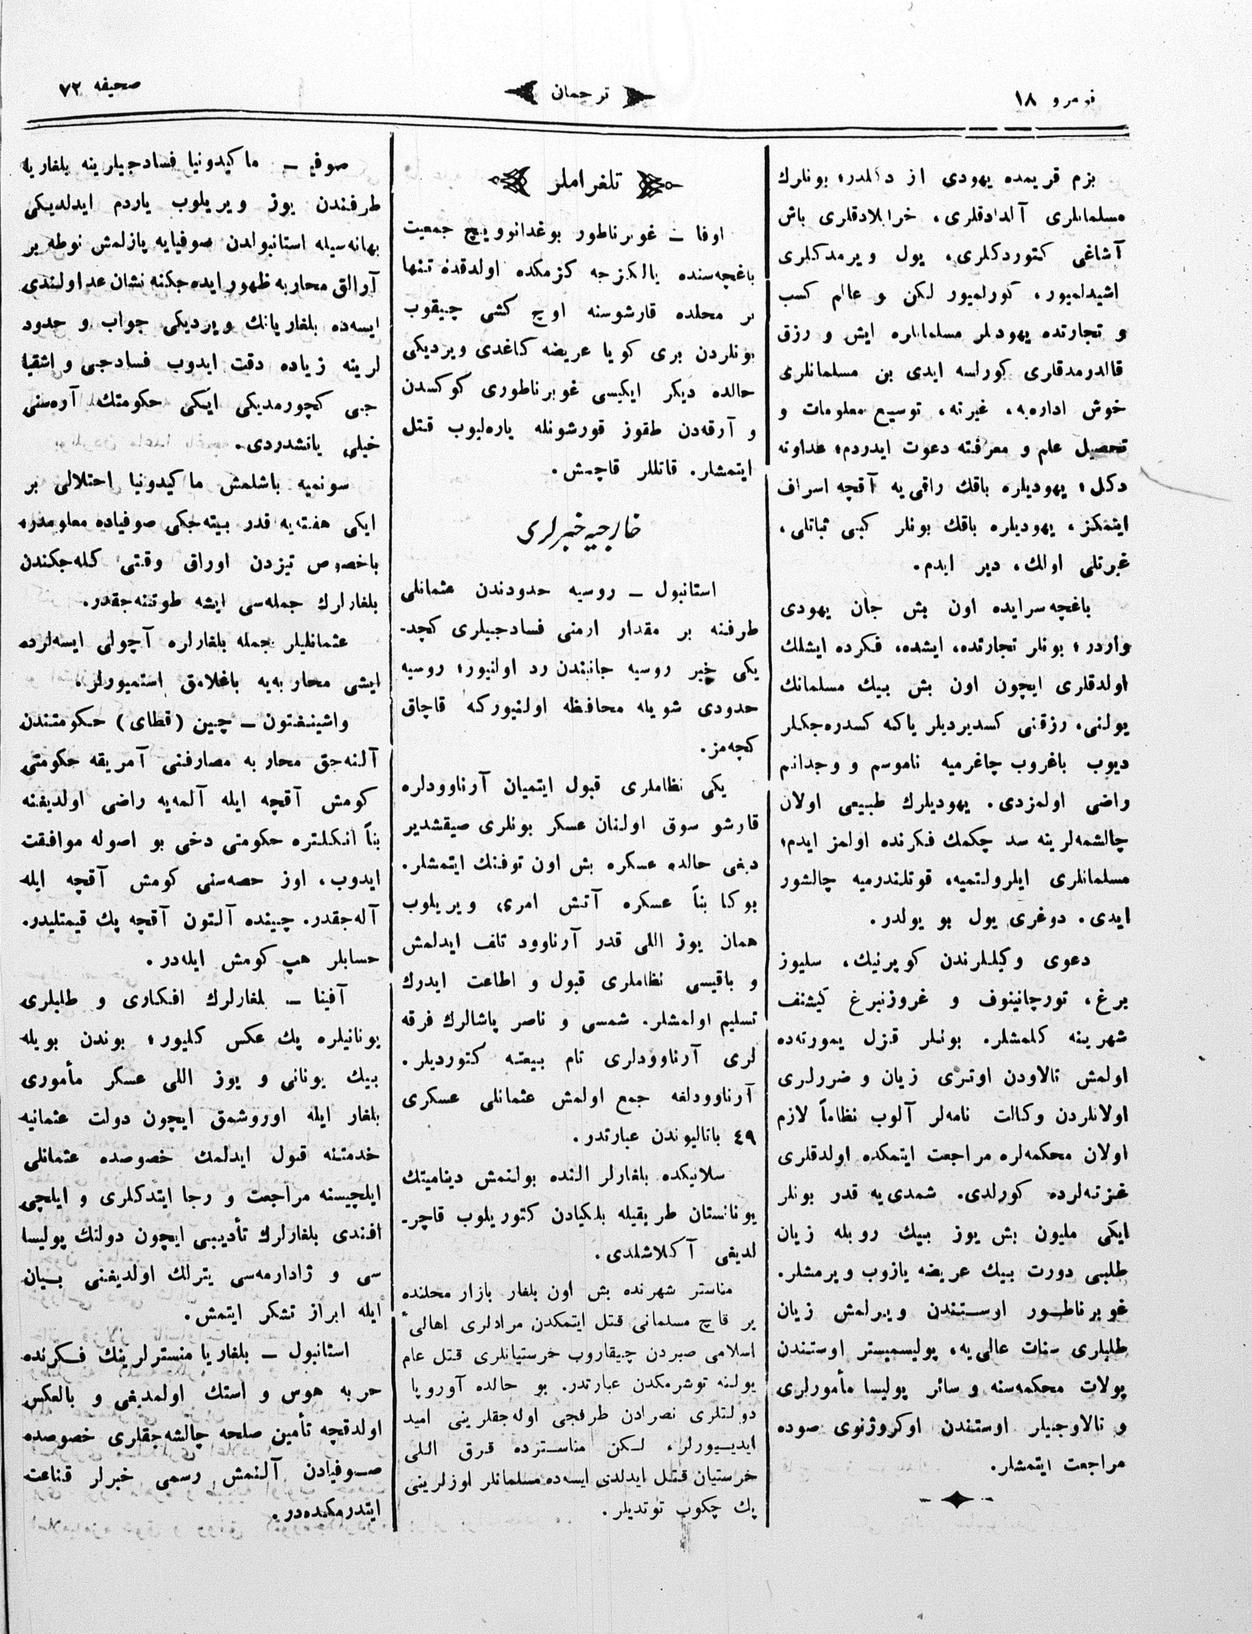 نومرو ١٨
ترجمان
صحیفه ٧٢
بزم قریمده یهودی از دکلدر؛ بونلرك
مسلمانلری آلدادقلری، خرابلادقلری باش
آشاغی کتوردکلری، یول ویرمدکلری
اشیدلمیور، کورلمیور لکن و عالم کسب
و تجارتده یهودیلر مسلمانلره ایش و رزق
قالدرمدقلری کورلسه ایدی بن مسلمانلری
خوش اداره‌یه، غیرته، توسیع معلومات و
تحصیل علم و معرفته دعوت ایدردم؛ عداوته
دکل؛ یهودیلره باقك راقی یه آقچه اسراف
ایتمکز، یهودیلره باقك بونلر کبی ثباتلی،
غیرتلی اولك، دیر ایدم.
باغچه‌سرایده اون بش جان یهودی
واردر؛ بونلر تجارتده، ایشده، فکرده ایشلك
اولدقلری ایچون اون بش بیك مسلمانك
یولنی، رزقنی کسدیردیلر یاکه کسدره‌جکلر
دیوب باغروب چاغرمیه ناموسم و وجدانم
راضی اولمزدی. یهودیلرك طبیعی اولان
چالشمه‌لرینه سد چکمك فکرنده اولمز ایدم؛
مسلمانلری ایلرولتمیه، قوتلندرمیه چالشور
ایدی. دوغری یول بو یولدر.
دعوی وکیللرندن کوپرنیك، سلیوز
برغ، تورچانینوف و غروزنبرغ کیشنف
شهرینه کلمشلر. بونلر قزل یمورته‌ده
اولمش تالاودن اوتری زیان و ضررلری
اولانلردن وکالت نامه‌لر آلوب نظاماً لازم
اولان محکمه‌لره مراجعت ایتمکده اولدقلری
غزته‌لرده کورلدی. شمدی‌یه قدر بونلر
ایکی ملیون بش یوز بیك روبله زیان
طلبی دورت بیك عریضه یازوب ویرمشلر.
غوبرناطور اوستندن ویرلمش زیان
طلبلری سنات عالی‌یه، پولیسمیستر اوستندن
پولات محکمه‌سنه و سائر پولیسا مأمورلری
و تالاوجیلر اوستندن اوکروژنوی صوده
مراجعت ایتمشلر.
تلغراملر
اوفا — غوبرناطور بوغدانوویچ جمعیت
باغچه‌سنده یالکزجه کزمکده اولدقده تنها
بر محلده قارشوسنه اوچ کشی چیقوب
بونلردن بری کویا عریضه کاغدی ویردیکی
حالده دیکر ایکیسی غوبرناطوری کوکسدن
و آرقه‌دن طقوز قورشونله یاره‌لیوب قتل
ایتمشار. قاتللر قاچمش.
خارجیه خبرلری
استانبول — روسیه حدودندن عثمانلی
طرفنه بر مقدار ارمنی فسادجیلری کچد-
یکی خبر روسیه جانبندن رد اولنیور؛ روسیه
حدودی شویله محافظه اولنیورکه قاچاق
کچه‌مز.
یکی نظاملری قبول ایتمیان آرناوودلره
قارشو سوق اولنان عسکر بونلری صیقشدیر
دیغی حالده عسکره بش اون توفنك ایتمشلر.
بوکا بناً عسکره آتش امری ویریلوب
همان یوز اللی قدر آرناوود تلف ایدلمش
و باقیسی نظاملری قبول و اطاعت ایدرك
تسلیم اولمشلر. شمسی و ناصر پاشالرك فرقه
لری آرناوودلری تام بیعته کتوردیلر.
آرناوودلغه جمع اولمش عثمانلی عسکری
٤٩ باتالیوندن عبارتدر.
سلانیکده بلغارلر النده بولنمش دینامیتك
یونانستان طریقیله بلکیادن کتوریلوب قاچر-
لدیغی آکلاشلدی.
مناستر شهرنده بش اون بلغار بازار محلنده
بر قاچ مسلمانی قتل ایتمکدن مرادلری اهالیٔ
اسلامی صبردن چیقاروب خرستیانلری قتل عام
یولنه توشرمکدن عبارتدر. بو حالده آوروپا
دولتلری نصرادن طرفجی اوله‌جقلرینی امید
ایدیورلر، لکن مناسترده قرق اللی
خرستیان قتل ایدلدی ایسه‌ده مسلمانلر اوزلرینی
پك چکوب توتدیلر.
صوفیه — ماکیدونیا فسادجیلرینه بلغاریا
طرفندن یوز ویریلوب یاردم ایدلدیکی
بهانه‌سیله استانبولدن صوفیایه یازلمش نوطه بر
آرالق محاربه ظهور ایده‌جکنه نشان عد اولندی
ایسه‌ده بلغاریانك ویردیکی جواب و حدود
لرینه زیاده دقت ایدوب فسادجی و اشقیا
جبی کچورمدیکی ایکی حکومتك آره‌سنی
خیلی یانشدردی.
سونمیه باشلمش ماکیدونیا احتلالی بر
ایکی هفته‌یه قدر بیته‌جکی صوفیاده معلومدر؛
باخصوص تیزدن اوراق وقتی کله‌جکندن
بلغارلرك جمله‌سی ایشه طوتنه‌جقدر.
عثمانلیلر جمله بلغارلره آچولی ایسه‌لرده
ایشی محاربه‌یه باغلامق استمیورلر.
واشینغتون — چین (قطای) حکومتندن
آلنه‌جق محاربه مصارفنی آمریقه حکومتی
کومش آقچه ایله آلمه‌یه راضی اولدیغنه
بناً انکلتره حکومتی دخی بو اصوله موافقت
ایدوب، اوز حصه‌سنی کومش آقچه ایله
آله‌جقدر. چینده آلتون آقچه پك قیمتلیدر.
حسابلر هپ کومش ایله‌در.
آفینا — بلغارلرك افکاری و طلبلری
یونانیلره پك عکس کلیور؛ بوندن بویله
بیك یونانی و یوز اللی عسکر مأموری
بلغار ایله اوروشمق ایچون دولت عثمانیه
خدمتنه قبول ایدلمك خصوصده عثمانلی
ایلچیسنه مراجعت و رجا ایتدکلری و ایلچی
افندی بلغارلرك تأدیبی ایچون دولتك پولیسا
سی و ژاندارمه‌سی یترلك اولدیغنی بیان
ایله ابراز تشکر ایتمش.
استانبول — بلغاریا منسترلرینك فکرنده
حربه هوس و استك اولمدیغی و بالعکس
اولدقچه تأمین صلحه چالشه‌جقلری خصوصده
صوفیادن آلنمش رسمی خبرلر قناعت
ایتدرمکده‌در.